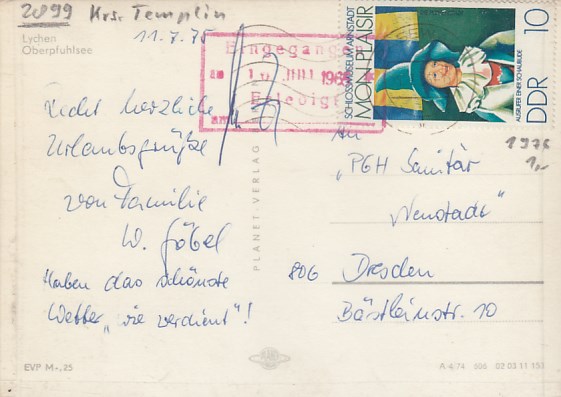 2099 Krs. Templin
Lychen
Oberpfuhlsee
11.7.75
Eingegangen
am
Erledigt
am
SCHLOSSMUSEUM ARNSTADT
MON PLAISIR
AUSRUFER EINER SCHAUBUDE
DDR 10
1975
1,-
Recht herzliche
Urlaubsgrüße
von Familie
W. Göbel
Haben das schönste
Wetter „wie verdient"!
PLANET VERLAG
An
„PGH Sanitär
Neustadt"
806 Dresden
Bästleinstr. 10
EVP M -,25
A 4/74 506 02 03 11 153